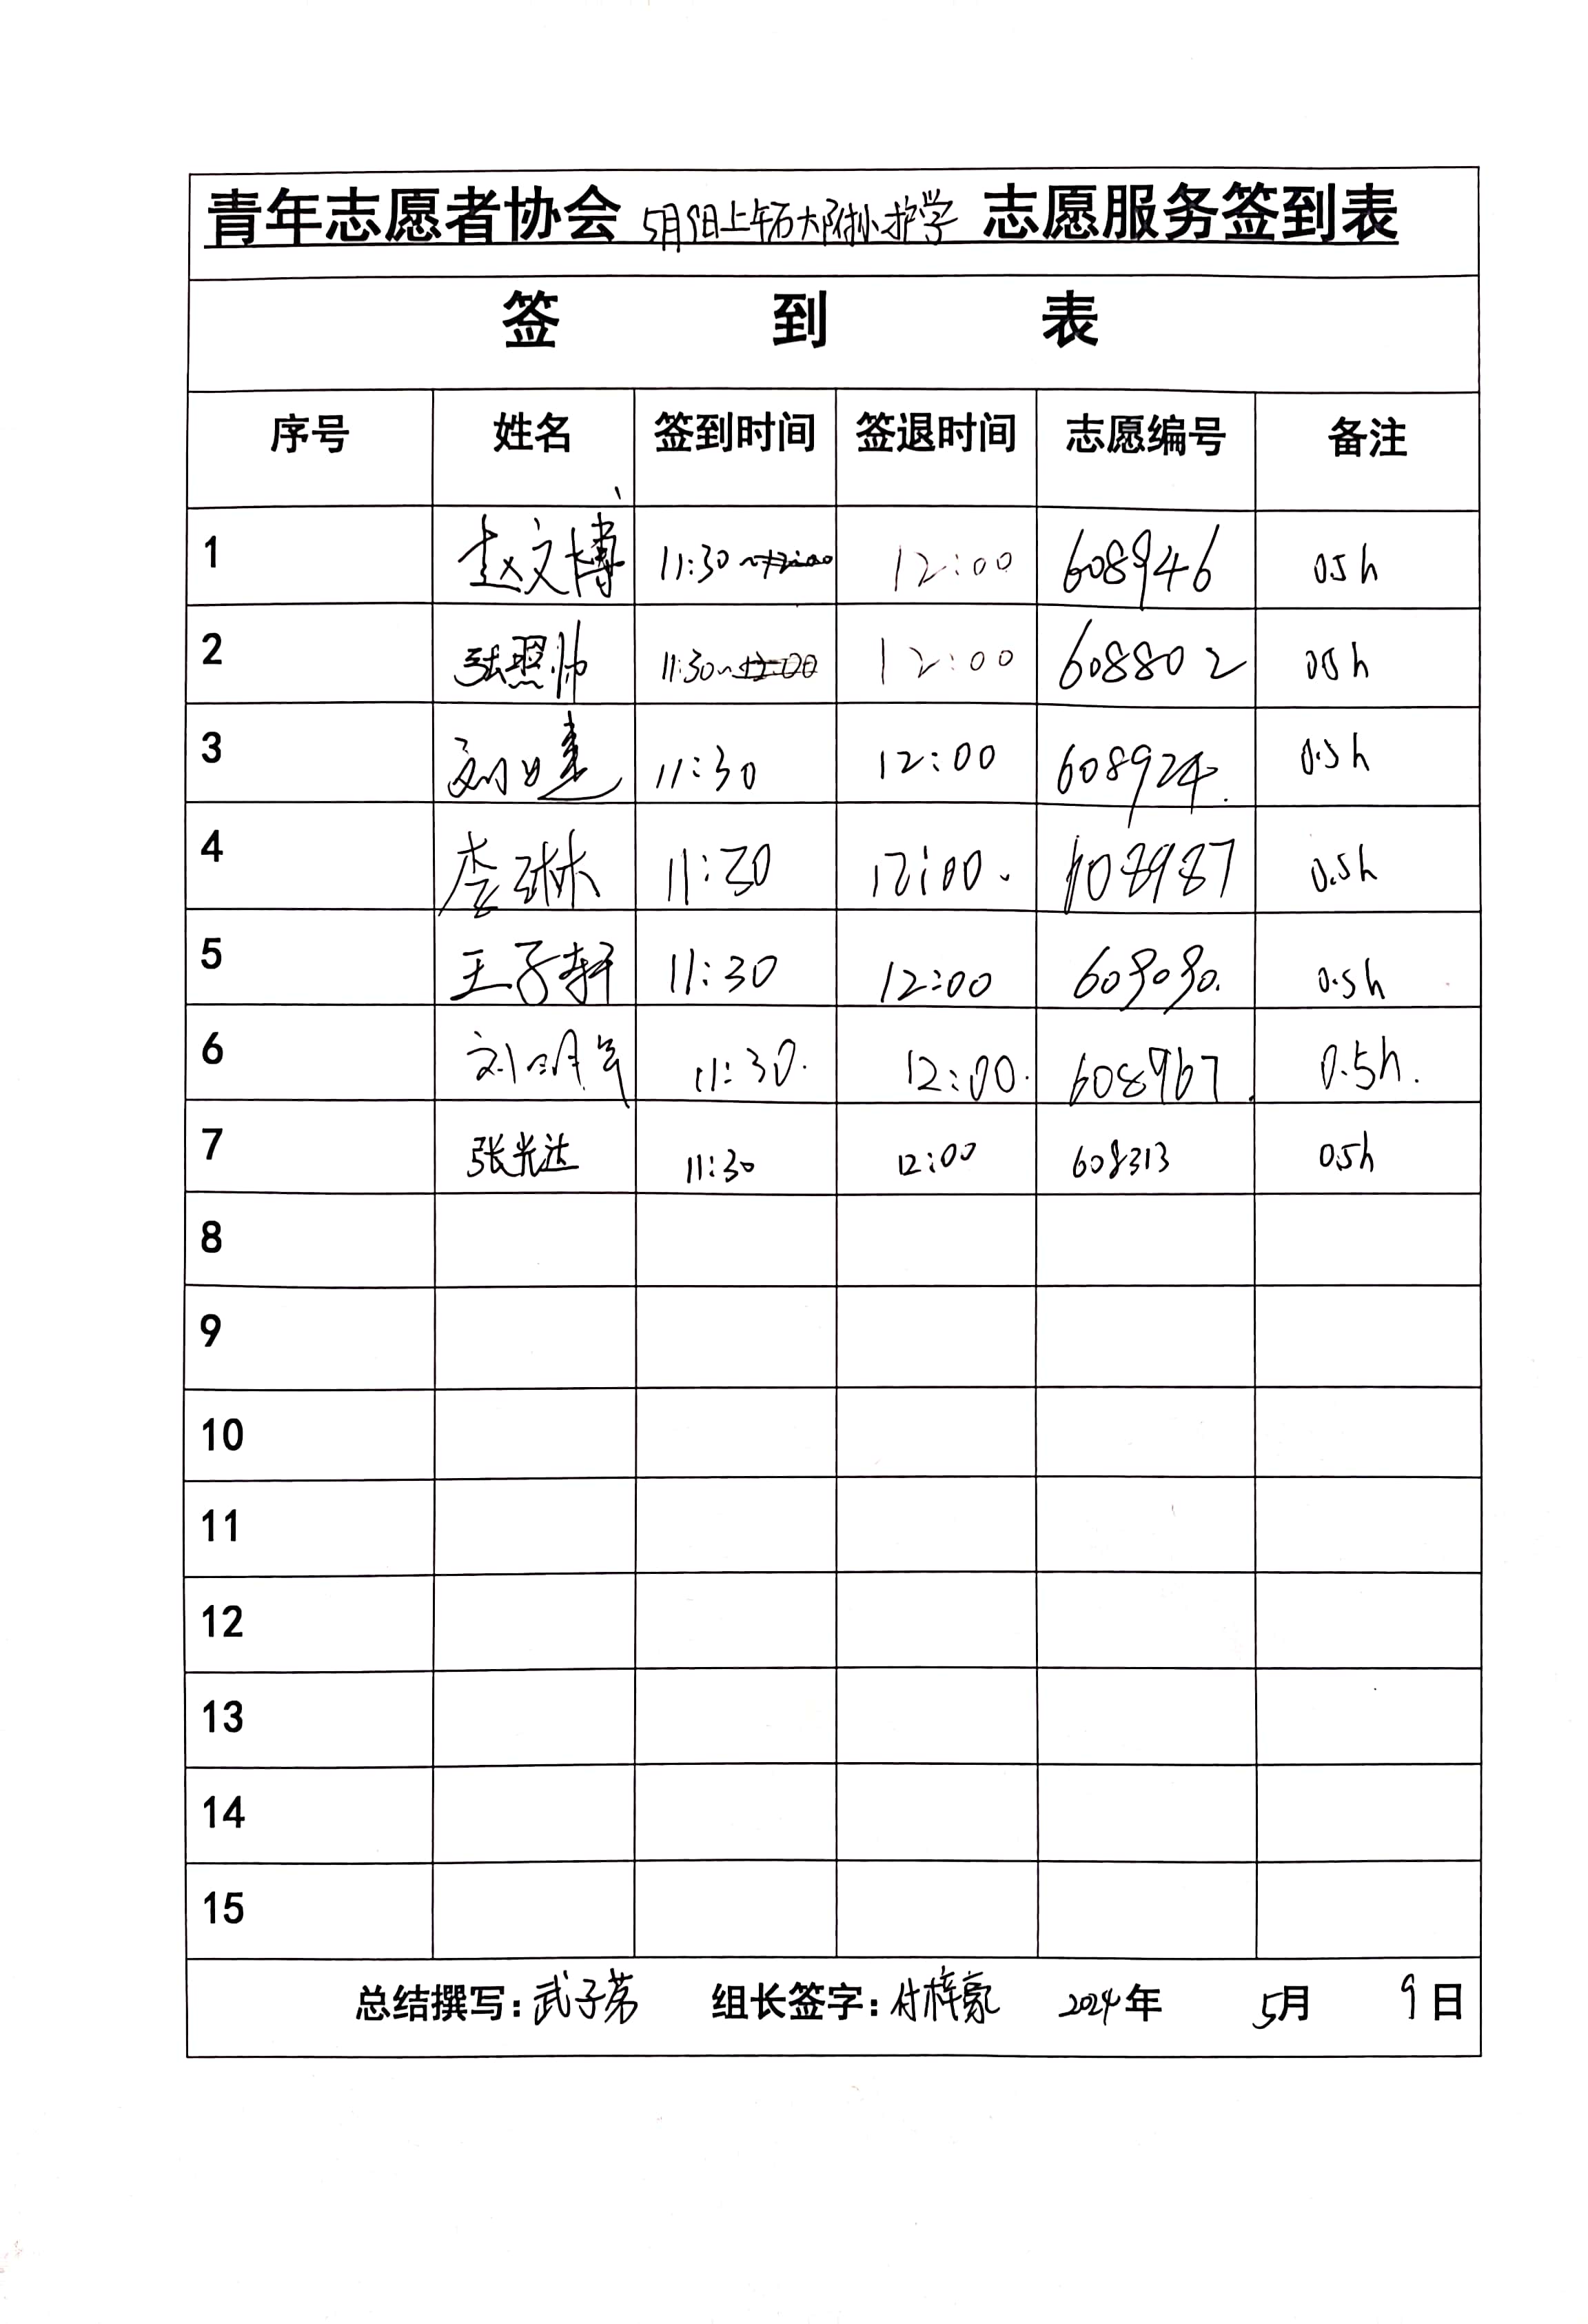 青年志愿者协会 5月9日上午石大附小护学 志愿服务签到表
签 到 表
序号 姓名 签到时间 签退时间 志愿编号 备注
1 赵文博 11:30 12:00 608946 0.5h
2 张照帅 11:30~12:00 12:00 608802 0.5h
3 11:30 12:00 608924. 0.5h
4 李琳 11:30 12:00. 608987 0.5h
5 王子轩 11:30 12:00 609090. 0.5h
6 11:30. 12:00. 608967. 0.5h.
7 张光达 11:30 12:00 608313 0.5h
8
9
10
11
12
13
14
15
总结撰写：武子芳 组长签字：付梓豪 2024年 5月 9日